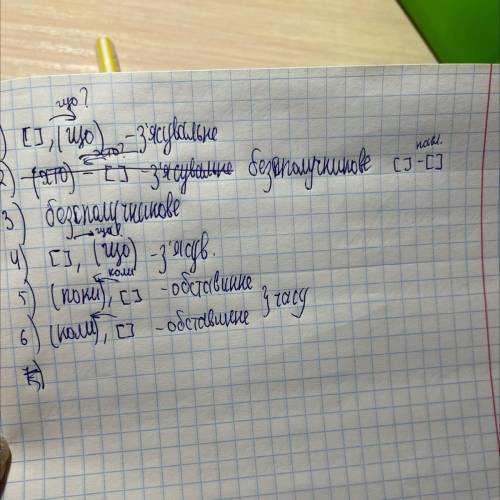 що?
1) [ ], (що) - з'ясувальне
2) (хто) - [ ] з'ясувальне безсполучникове [ ] - [ ]
3) безсполучникове
4) [ ], (що) - з'ясув.
коли
5) (поки), [ ] - обставинне
6) (коли), [ ] - обставинне } часу
7)